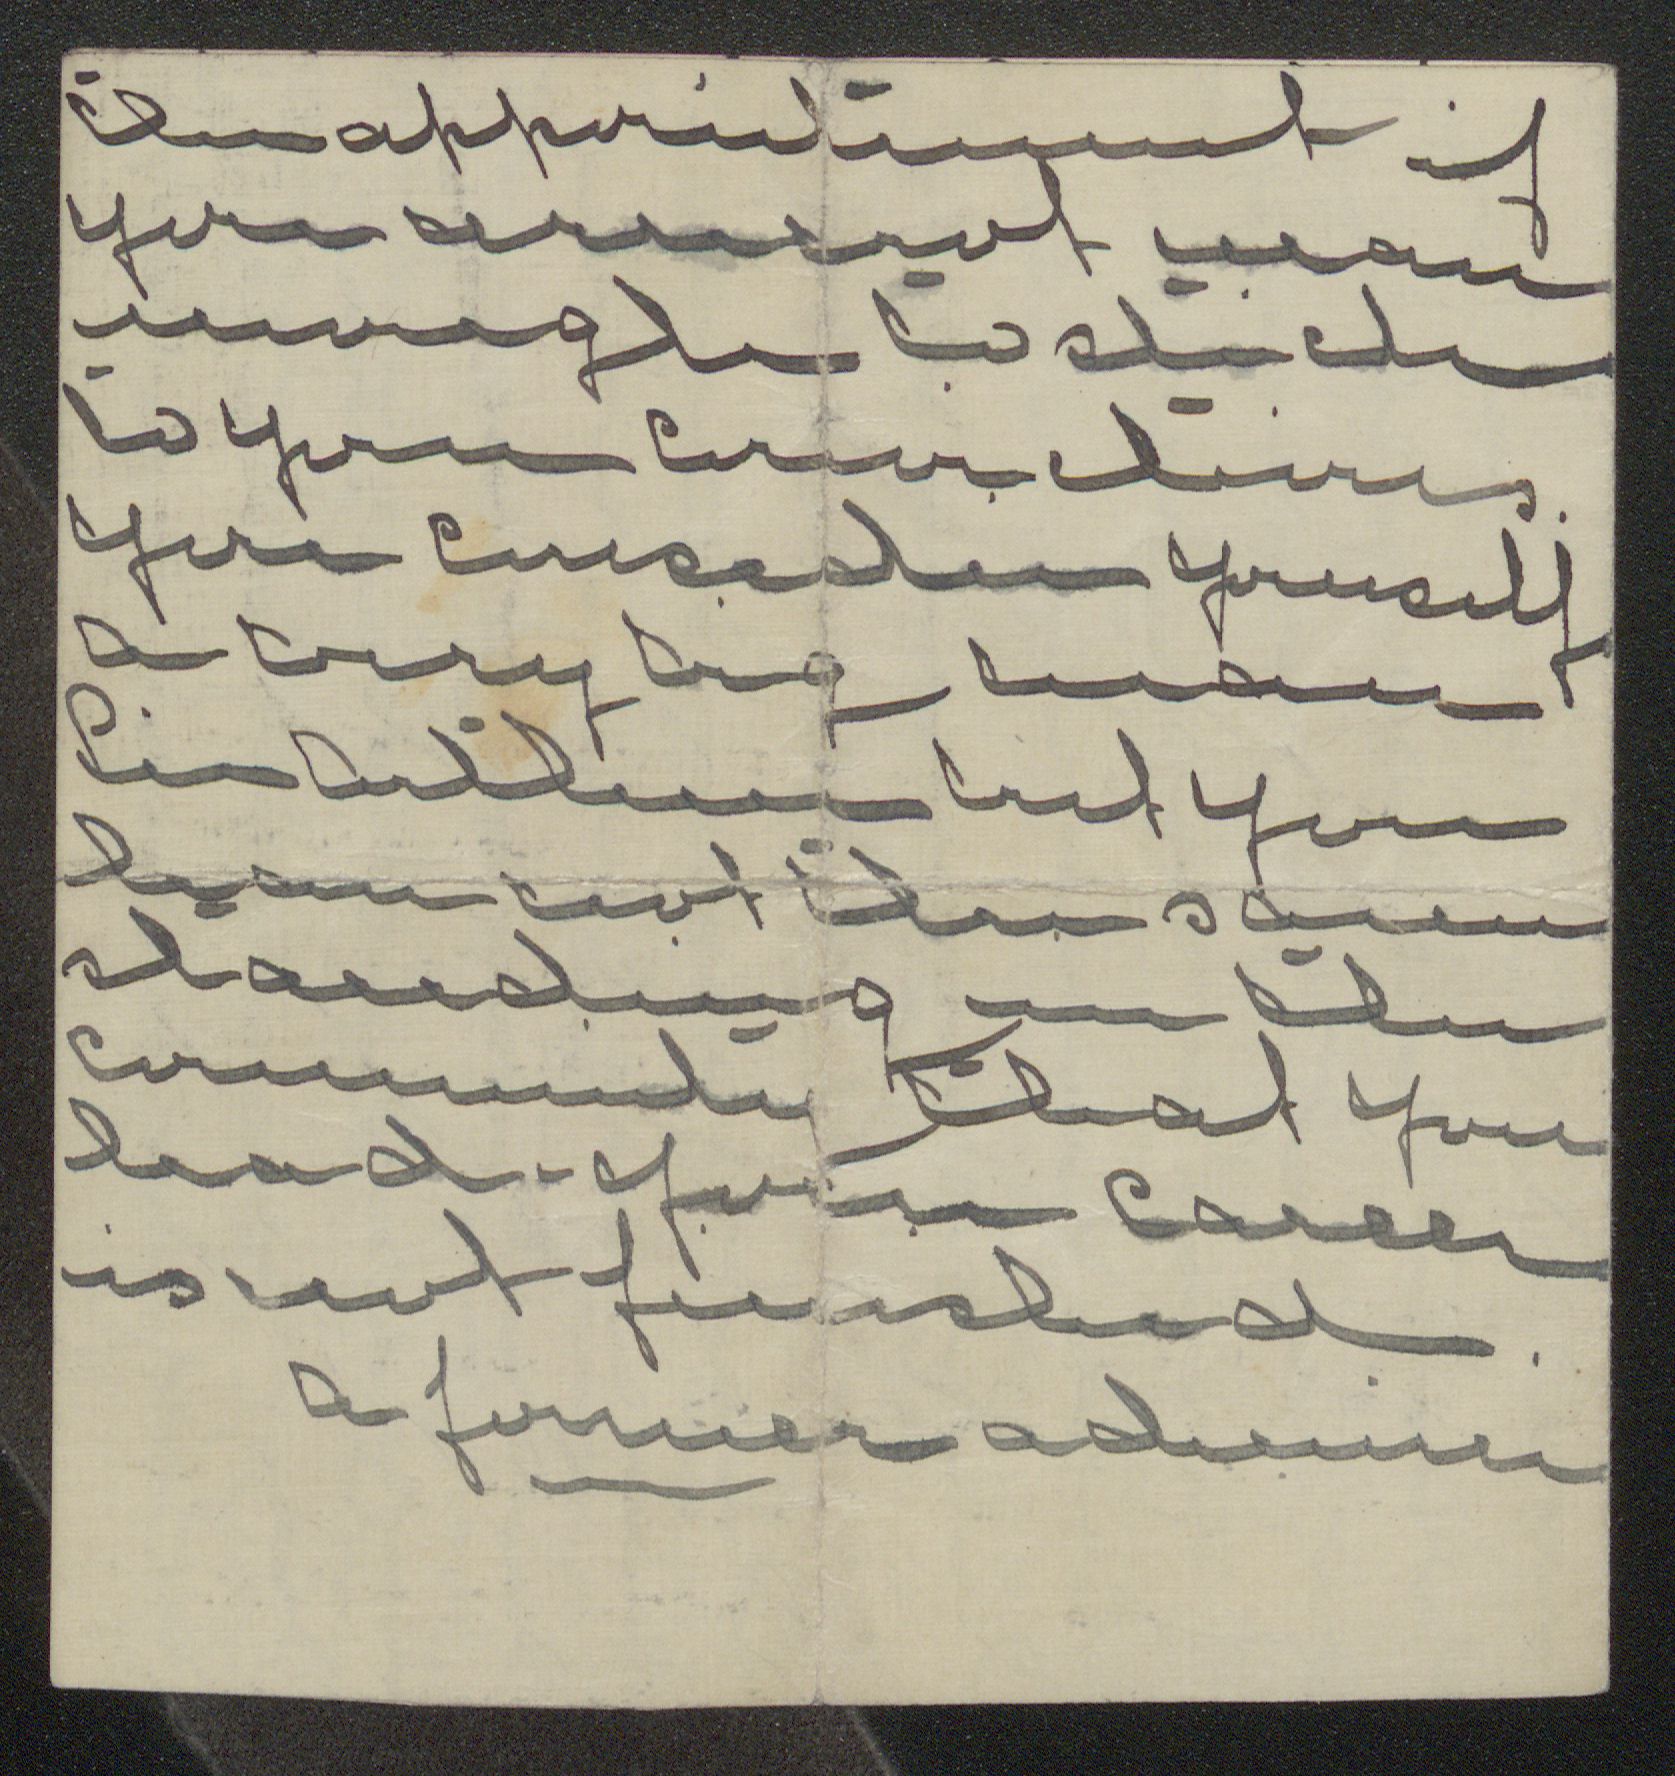 the appointment if
you are not man
enough to stick
to your convictions.
you consider yourself
a very big man
Sir William but you
have not the same
standing in the
community that you
had - your career
is not finished.
a former admirer